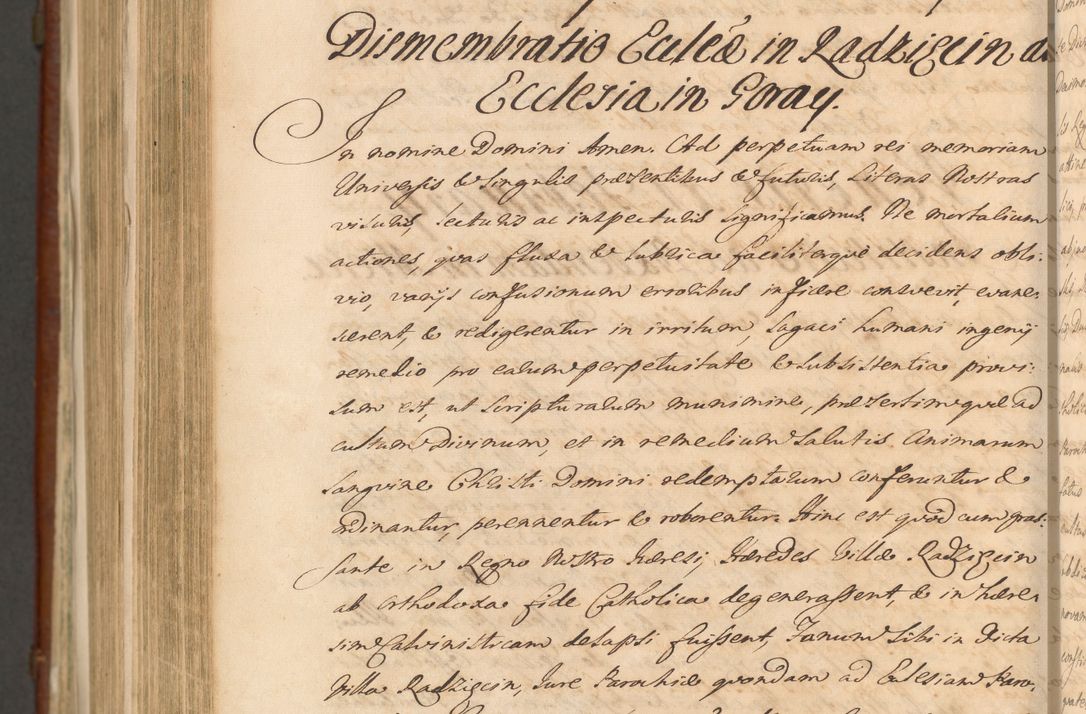 Dismembratio Eccłæ in Radzięcin ab
Ecclesia in Goray.
In nomine Domini Amen. Ad perpetuam rei memoriam
Universis & Singulis præsentibus & futuris, Literas Nostras
visuris, lecturis ac inspecturis significamus. Ne mortalium
actiones, quas fluxa & lubrica faciliterquè decidens obli-
vio, varijs confusionum erroribus inficere convevit, evane-
scerent, & redigerentur in irritum, sagaci humani ingenij
remedio pro earum perpetuitate & subsistentia provi-
sum est, ut scripturarum munimine, præsertim quæ ad
cultum Divinum, et in remedium Salutis Animarum
Sanguine Christi Domini redemptarum conferuntur &
ordinantur, perennentur & roborentur. Hinc est quod cum gras-
sante in Regno Nostro Hæresi, Hæredes Villæ Radzięcin
ab Orthodoxa fide Catholica degenerassent, & in Hære-
sim Calvinisticam delapsi fuissent, Fanum Sibi in dicta
Villa Radzięcin, Jure Parochiæ quondam ad Eclesiam Paro-